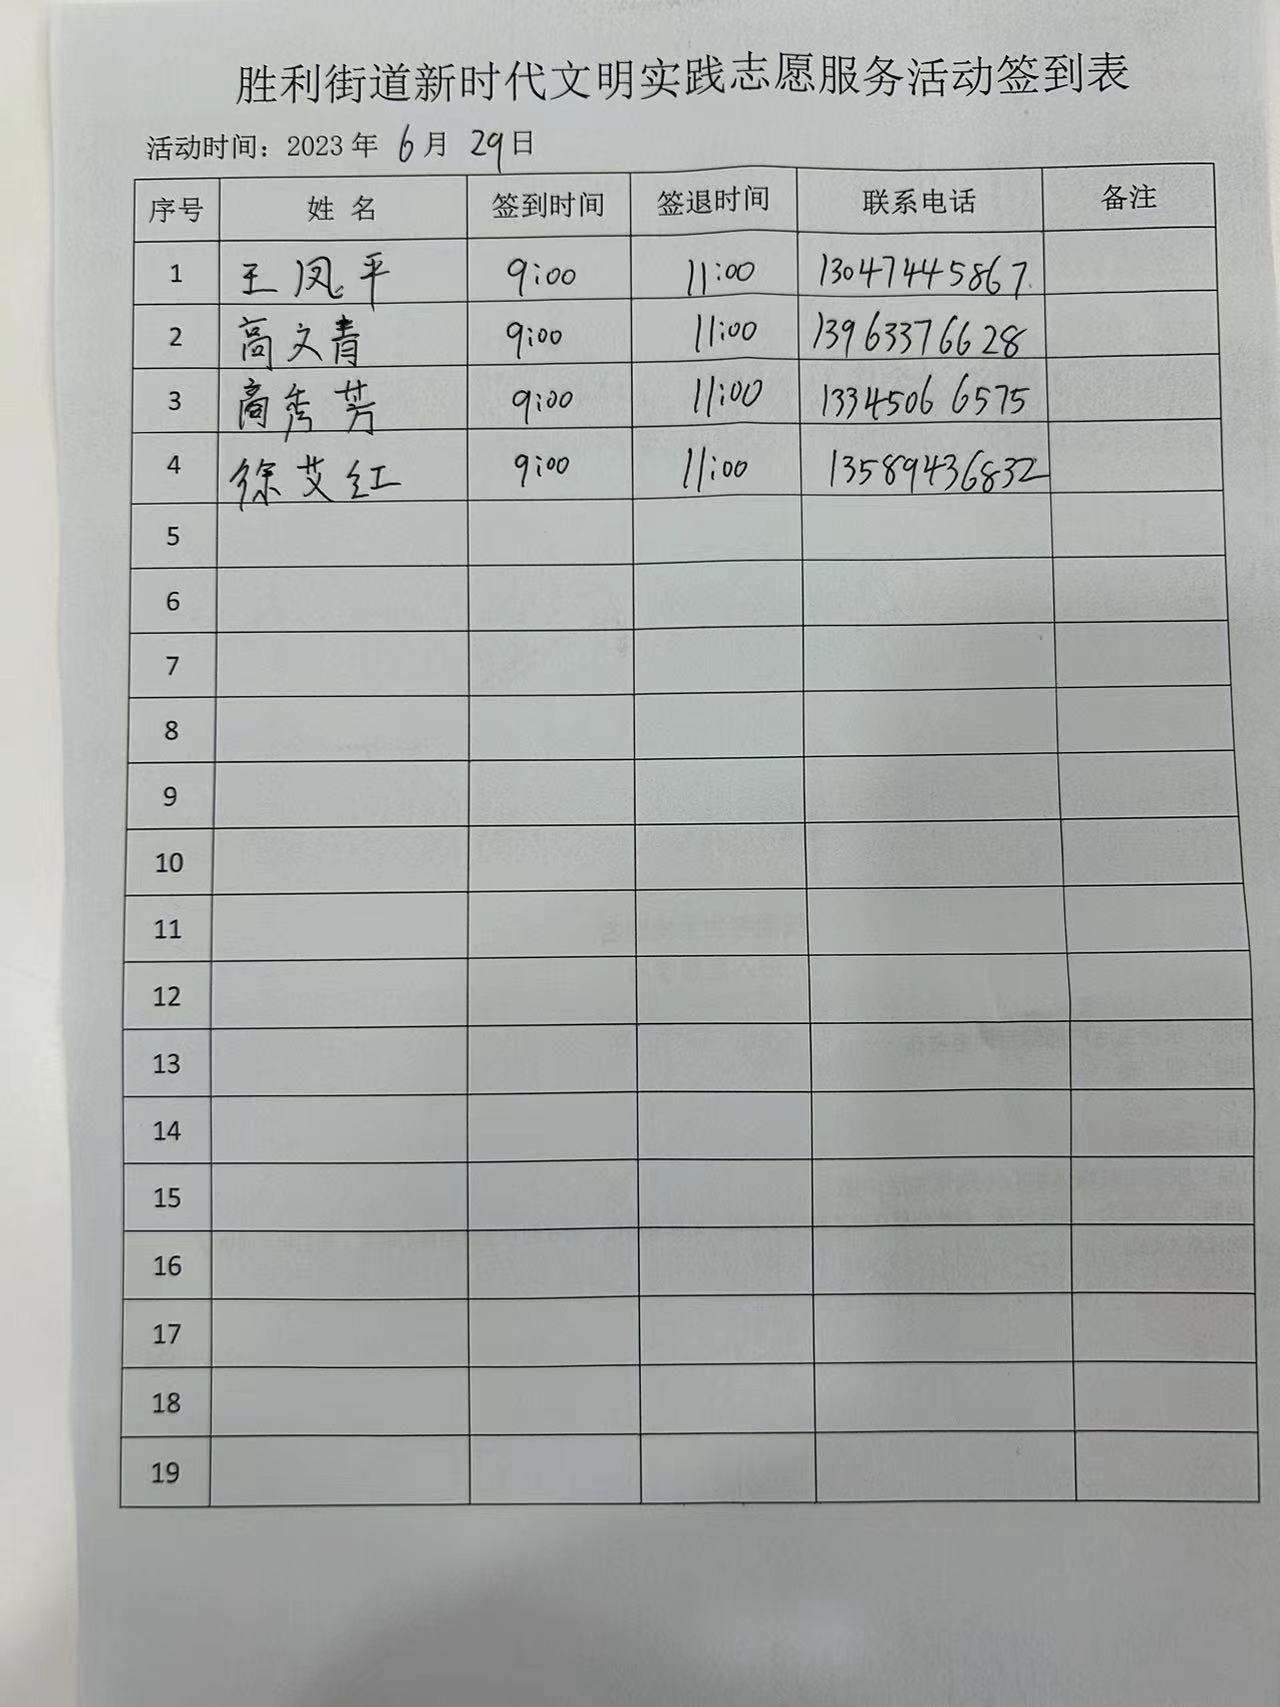 胜利街道新时代文明实践志愿服务活动签到表
活动时间：2023 年 6 月 29 日
序号 姓 名 签到时间 签退时间 联系电话 备注
1 王凤平 9:00 11:00 13047445867
2 高文青 9:00 11:00 13963376628
3 高秀芳 9:00 11:00 13345066575
4 徐艾红 9:00 11:00 13589436832
5
6
7
8
9
10
11
12
13
14
15
16
17
18
19